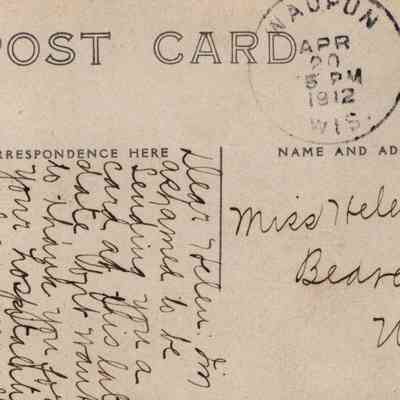 POST CARD
WAUPUN
APR
20
5 PM
1912
WIS.
RRESPONDENCE HERE
NAME AND AD
Dear Helen: Im
ashamed to be
sending you a
card at this late
date but want
to thank you for
your hospitalit
Miss Hele
Beave
W